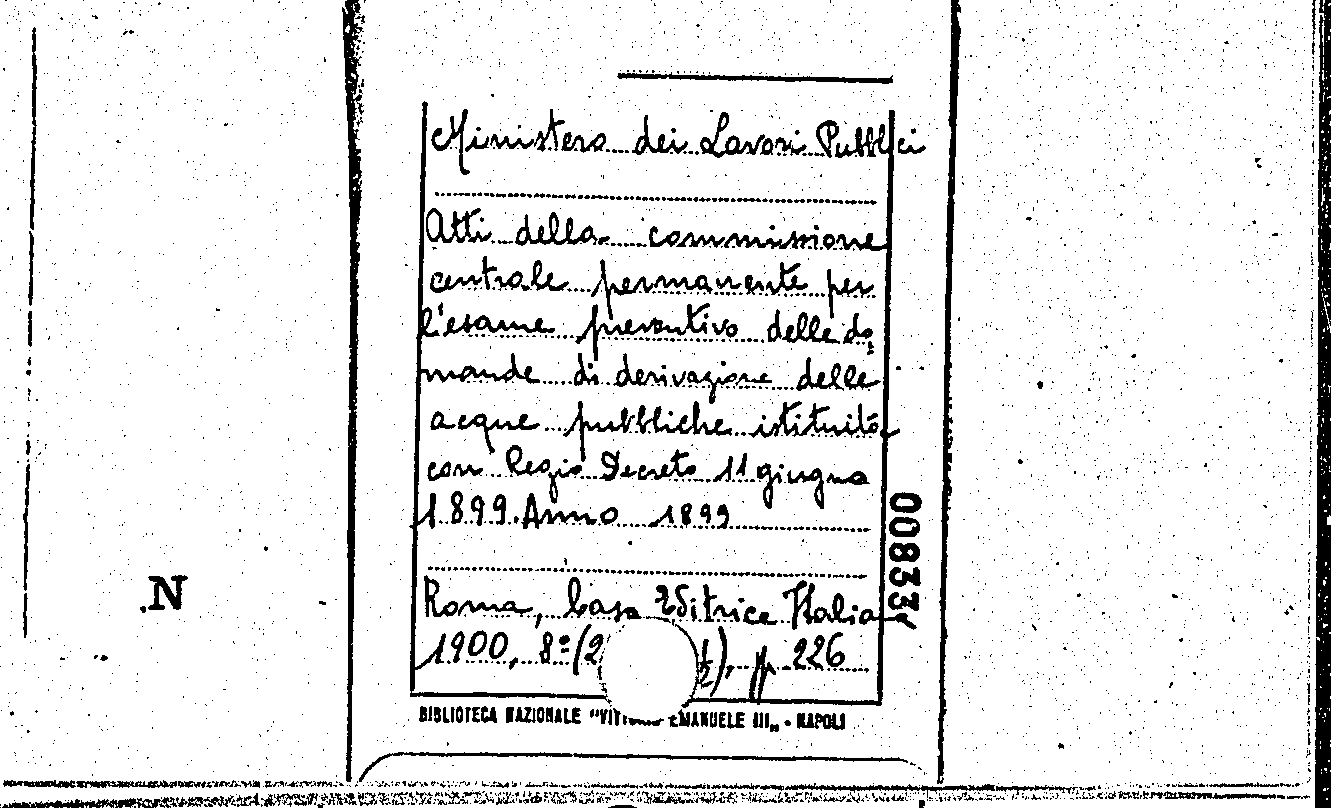 Ministero dei Lavori Pubblici
Atti della commissione
centrale permanente per
l'esame preventivo delle do=
mande di derivazione delle
acque pubbliche istituita
con Regio Decreto 11 giugno
1899. Anno 1899
Roma, Casa Editrice Italiana
1900, 8º (2 ½), p. 226
BIBLIOTECA NAZIONALE "VITTORIO EMANUELE III" - NAPOLI
00833
.N